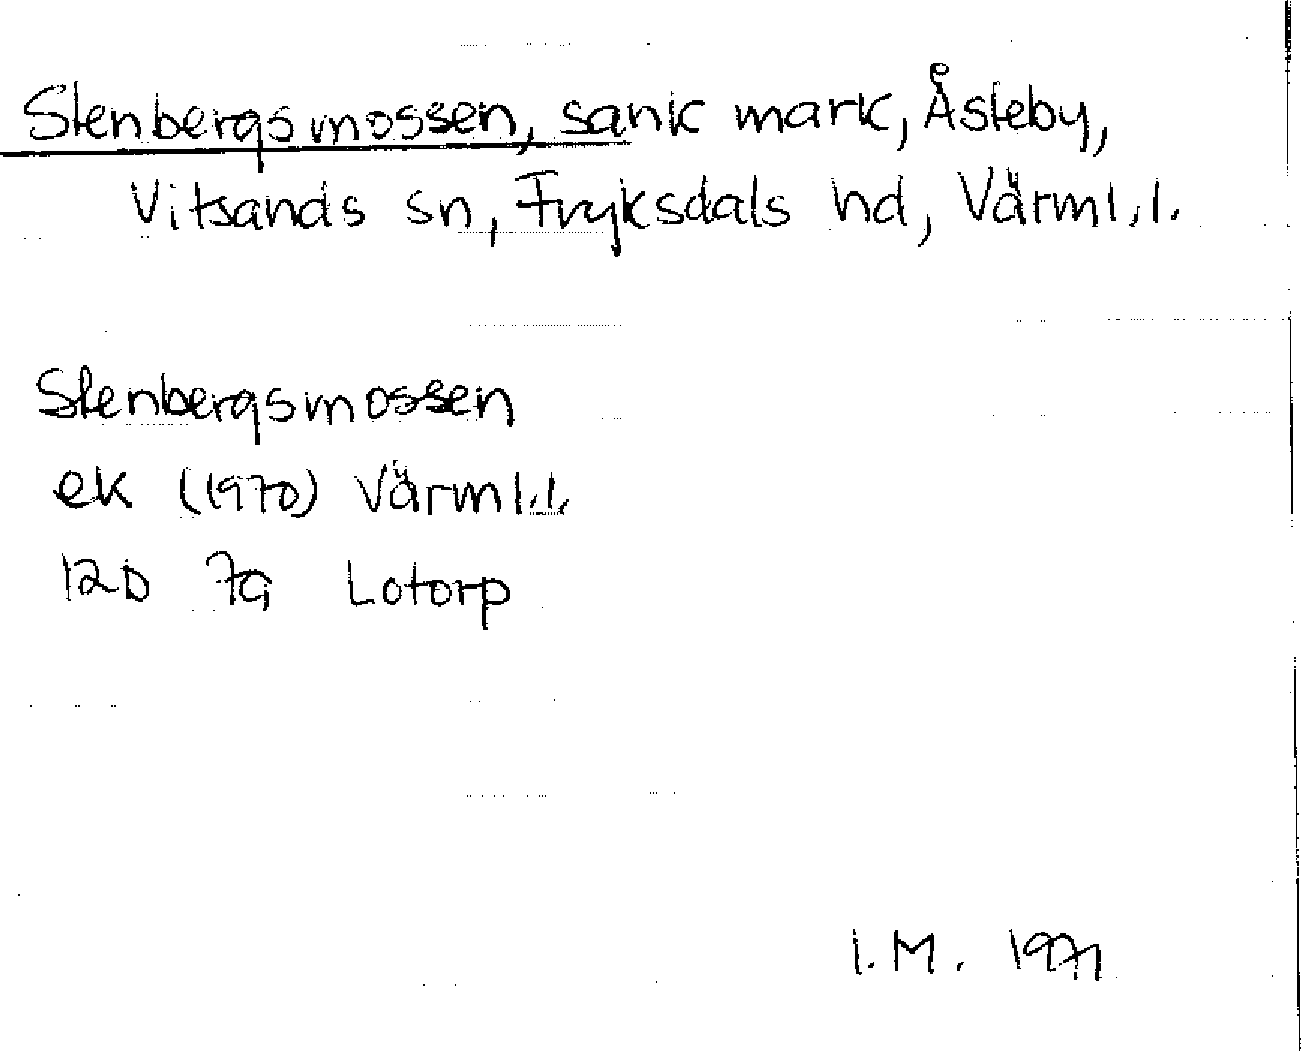 Stenbergsmossen, sank mark, Åsteby,
Vitsands sn, Fryksdals hd, Värml.l.
Stenbergsmossen
ek (1970) Värml.l.
12D 7a Lotorp
I.M. 1971